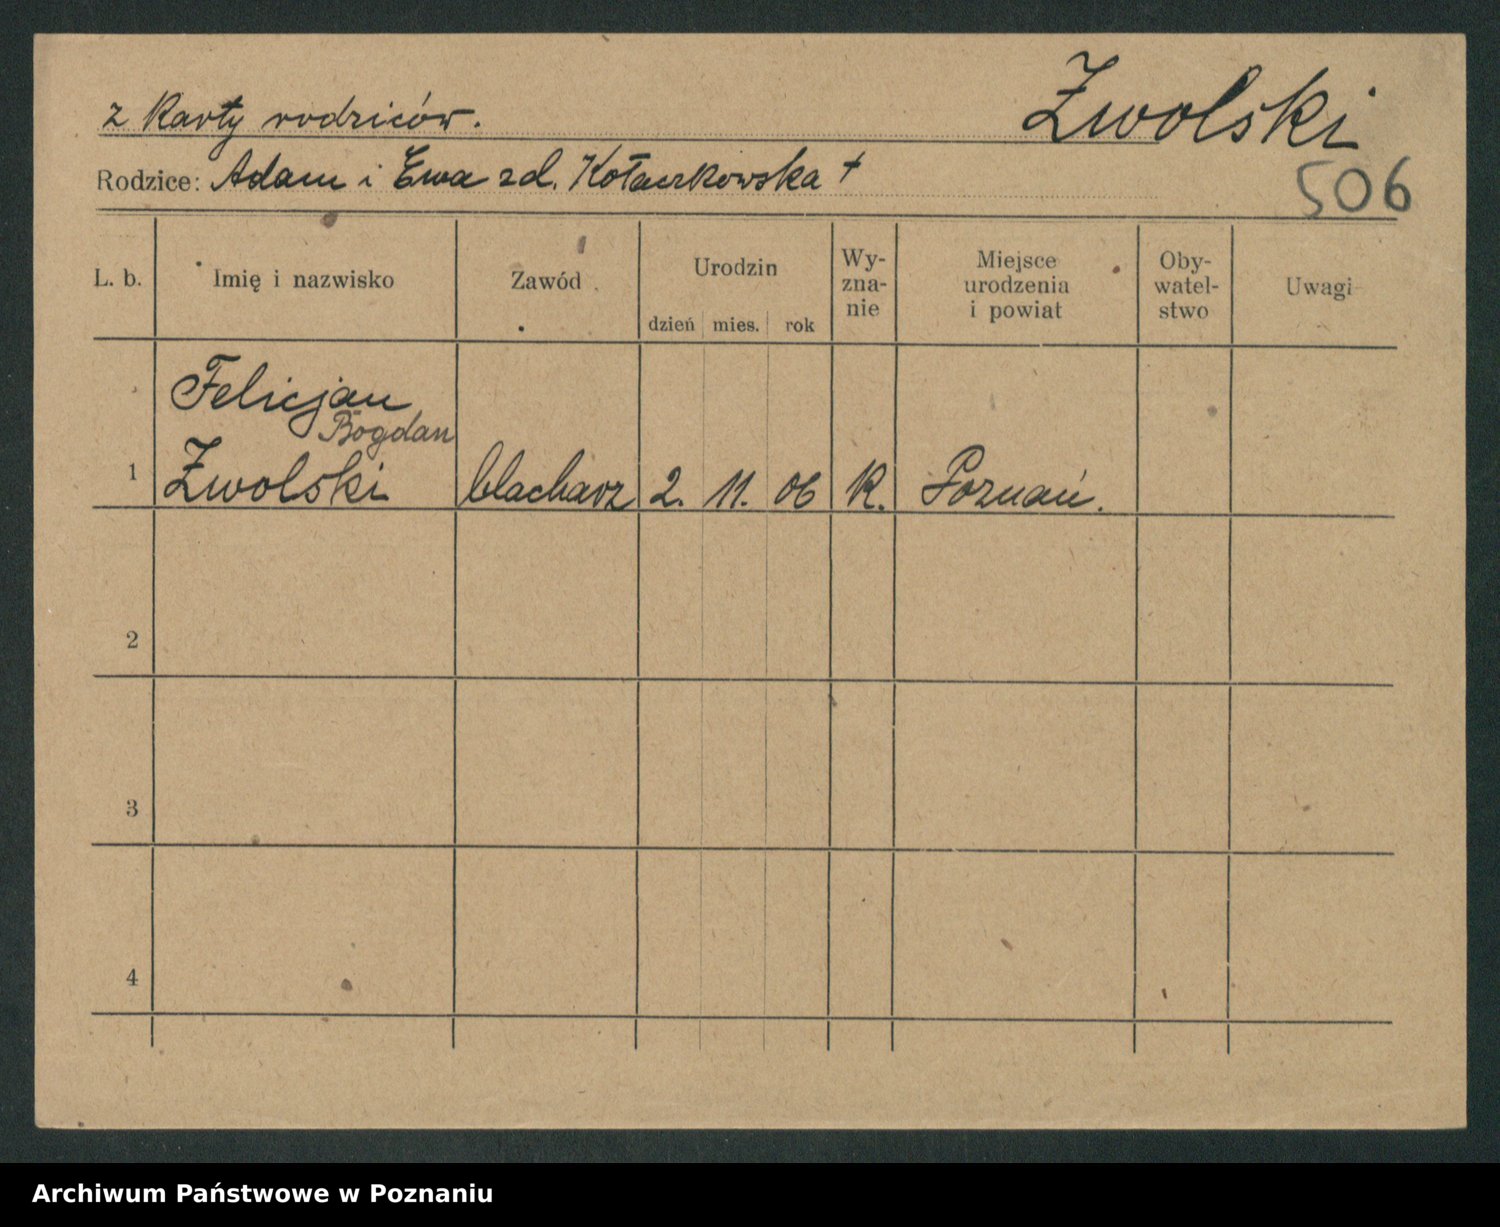 z karty rodziców.
Zwolski
Rodzice: Adam i Ewa zd. Kołaczkowska †
506
L. b.
Imię i nazwisko
Zawód
Urodzin
dzień mies. rok
Wy-
zna-
nie
Miejsce
urodzenia
i powiat
Oby-
watel-
stwo
Uwagi
Felicjan
Bogdan
1 Zwolski blacharz 2. 11. 06 k. Poznań.
2
3
4
Archiwum Państwowe w Poznaniu